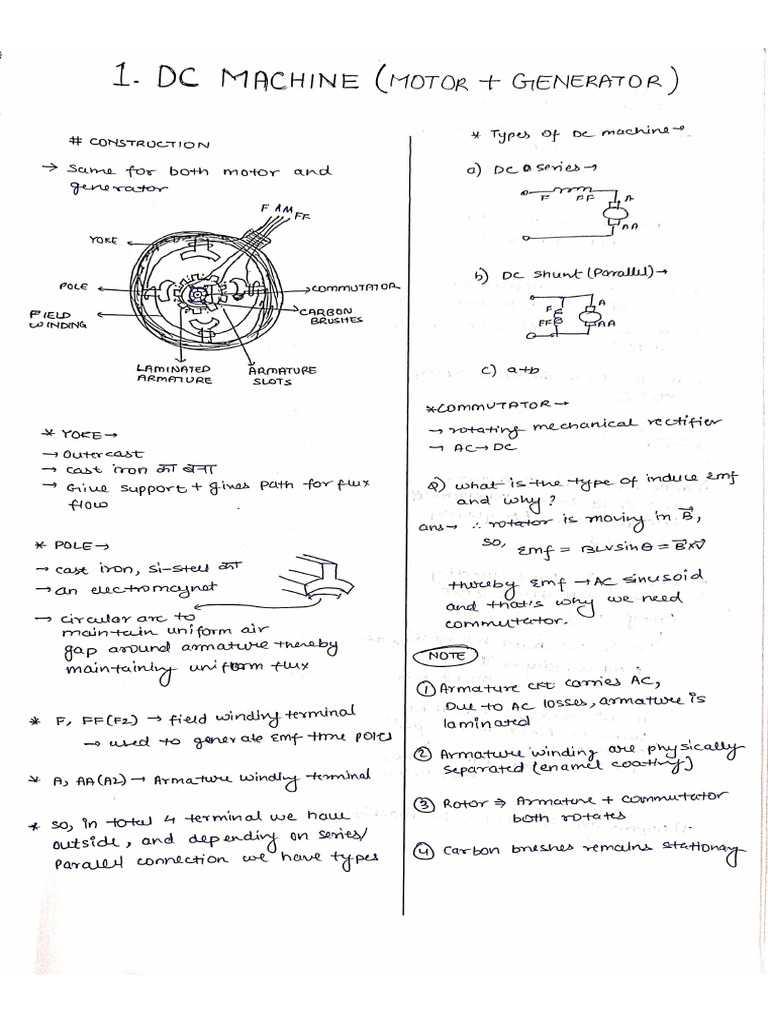 1. DC MACHINE (MOTOR + GENERATOR)
# CONSTRUCTION
→ Same for both motor and
generator
F A M
FF
YOKE
POLE
COMMUTATOR
FIELD
WINDING
CARBON
BRUSHES
LAMINATED
ARMATURE
ARMATURE
SLOTS
* YOKE →
→ Outercast
→ cast iron का बना
→ Give support + gives path for flux
flow
* POLE →
→ cast iron, si-steel का
→ an electromagnet
→ circular arc to
maintain uniform air
gap around armature thereby
maintaining uniform flux
* F, FF(F2) → field winding terminal
→ used to generate Emf
* A, AA(A2) → Armature winding terminal
* so, in total 4 terminal we have
outside, and depending on series/
Parallel connection we have types
* Types of DC machine →
a) DC series →
F FF A
AA
b) DC shunt (Parallel) →
A
F
FF AA
c) a+b
* COMMUTATOR →
→ rotating mechanical rectifier
→ AC → DC
Q) what is the type of induce Emf
and why?
ans → ∴ rotator is moving in B⃗,
so, Emf = BLVsinθ = B⃗×V⃗
thereby Emf → AC sinusoid
and that's why we need
commutator.
NOTE
① Armature ckt carries AC,
Due to AC losses, armature is
laminated
② Armature winding are physically
separated (enamel coating)
③ Rotor ⇒ Armature + commutator
both rotates
④ Carbon brushes remains stationary